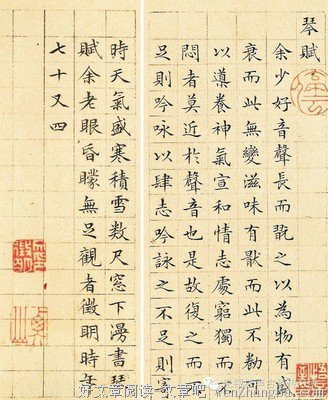 琴賦
余少好音聲長而翫之以為物有盛
衰而此無變滋味有猒而此不勌
以導養神氣宣和情志處窮獨而
悶者莫近於聲音也是故復之而
足則吟詠以肆志吟詠之不足則寄
時天氣盛寒積雪數尺窓下漫書琴
賦余老眼昏矇無足觀者徵明時年
七十又四
好文章阅读-文章吧
wenzhangba.com